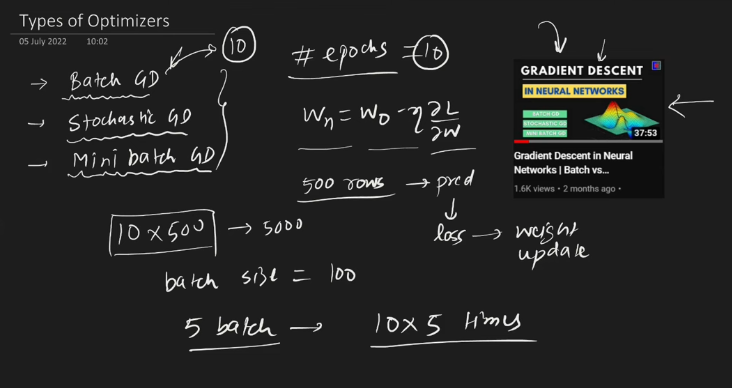 Types of Optimizers
05 July 2022 10:02
→ Batch GD
10
→ Stochastic GD
→ Mini batch GD
# epochs = 10
Wn = Wo - η ∂L/∂W
500 rows → pred
↓
loss → weight update
10 x 500 → 5000
batch size = 100
5 batch → 10 x 5 times
GRADIENT DESCENT
IN NEURAL NETWORKS
BATCH GD
STOCHASTIC GD
MINI BATCH GD
37:53
Gradient Descent in Neural
Networks | Batch vs...
1.6K views • 2 months ago •